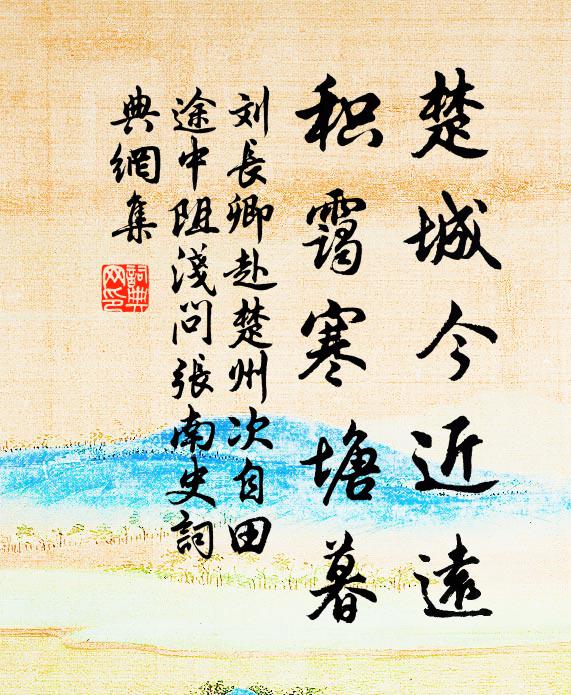 楚城今近遠
积靄寒塘暮
刘長卿赴楚州次自田
途中阻淺问張南史詞
典網集
詞典网印